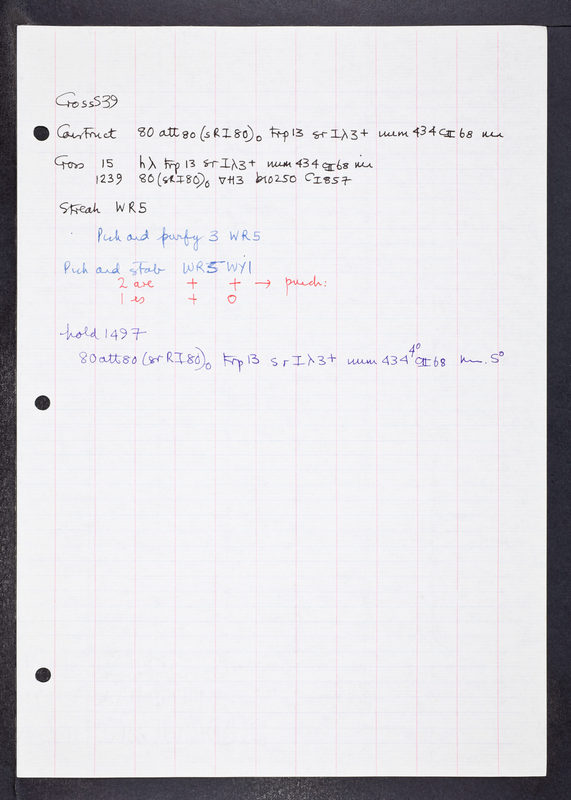 Cross 539
Construct 80 att 80 (sRI80)₀ trp 13 sr Iλ3+ num 434 cII 68
Cross 15 hλ trp 13 sr Iλ3+ num 434 cII 68
1239 80 (sRI80)₀ ∇H3 bio250 CI857
Streak WR5
Pick and purify 3 WR5
Pick and stab WR5 WY1
2 are + + →
1 is + 0
hold 1497
80 att 80 (sr RI80)₀ trp 13 sr Iλ3+ num 434 4° cII 68 5°